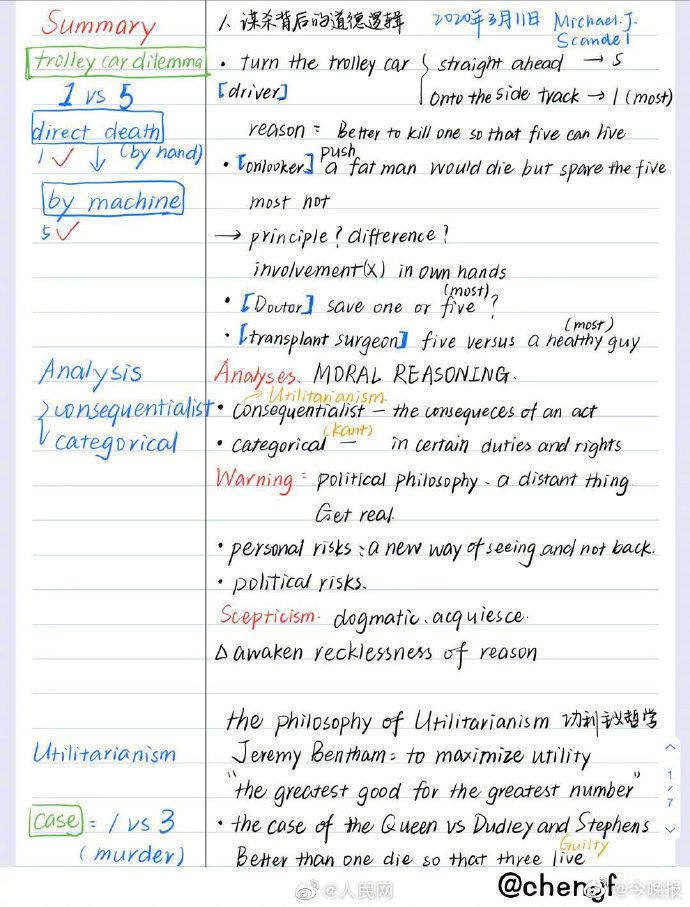 Summary
trolley car dilemma
1 vs 5
direct death
1 ✓ ↓ (by hand)
by machine
5 ✓
Analysis
consequentialist
categorical
Utilitarianism
case = 1 vs 3
(murder)
1. 谋杀背后的道德逻辑 2020年3月11日 Michael.J.
Scandel
· turn the trolley car { straight ahead → 5
[driver] onto the side track → 1 (most)
reason = Better to kill one so that five can live
push
· [onlooker] a fat man would die but spare the five
most not
→ principle? difference?
involvement(x) in own hands
(most)
· [Doutor] save one or five ?
(most)
· [transplant surgeon] five versus a healthy guy
Analyses. MORAL REASONING.
→ Utilitarianism.
· consequentialist — the consequeces of an act
(Kant)
· categorical — in certain duties and rights
Warning = political philosophy - a distant thing
Get real.
· personal risks : a new way of seeing and not back.
· political risks.
Scepticism. dogmatic、acquiesce.
Δ awaken recklessness of reason
the philosophy of Utilitarianism 功利主义哲学
Jeremy Bentham = to maximize utility
"the greatest good for the greatest number"
· the case of the Queen vs Dudley and Stephens
Guilty
Better than one die so that three live
1
7
@人民网
@今晚报
@chengf